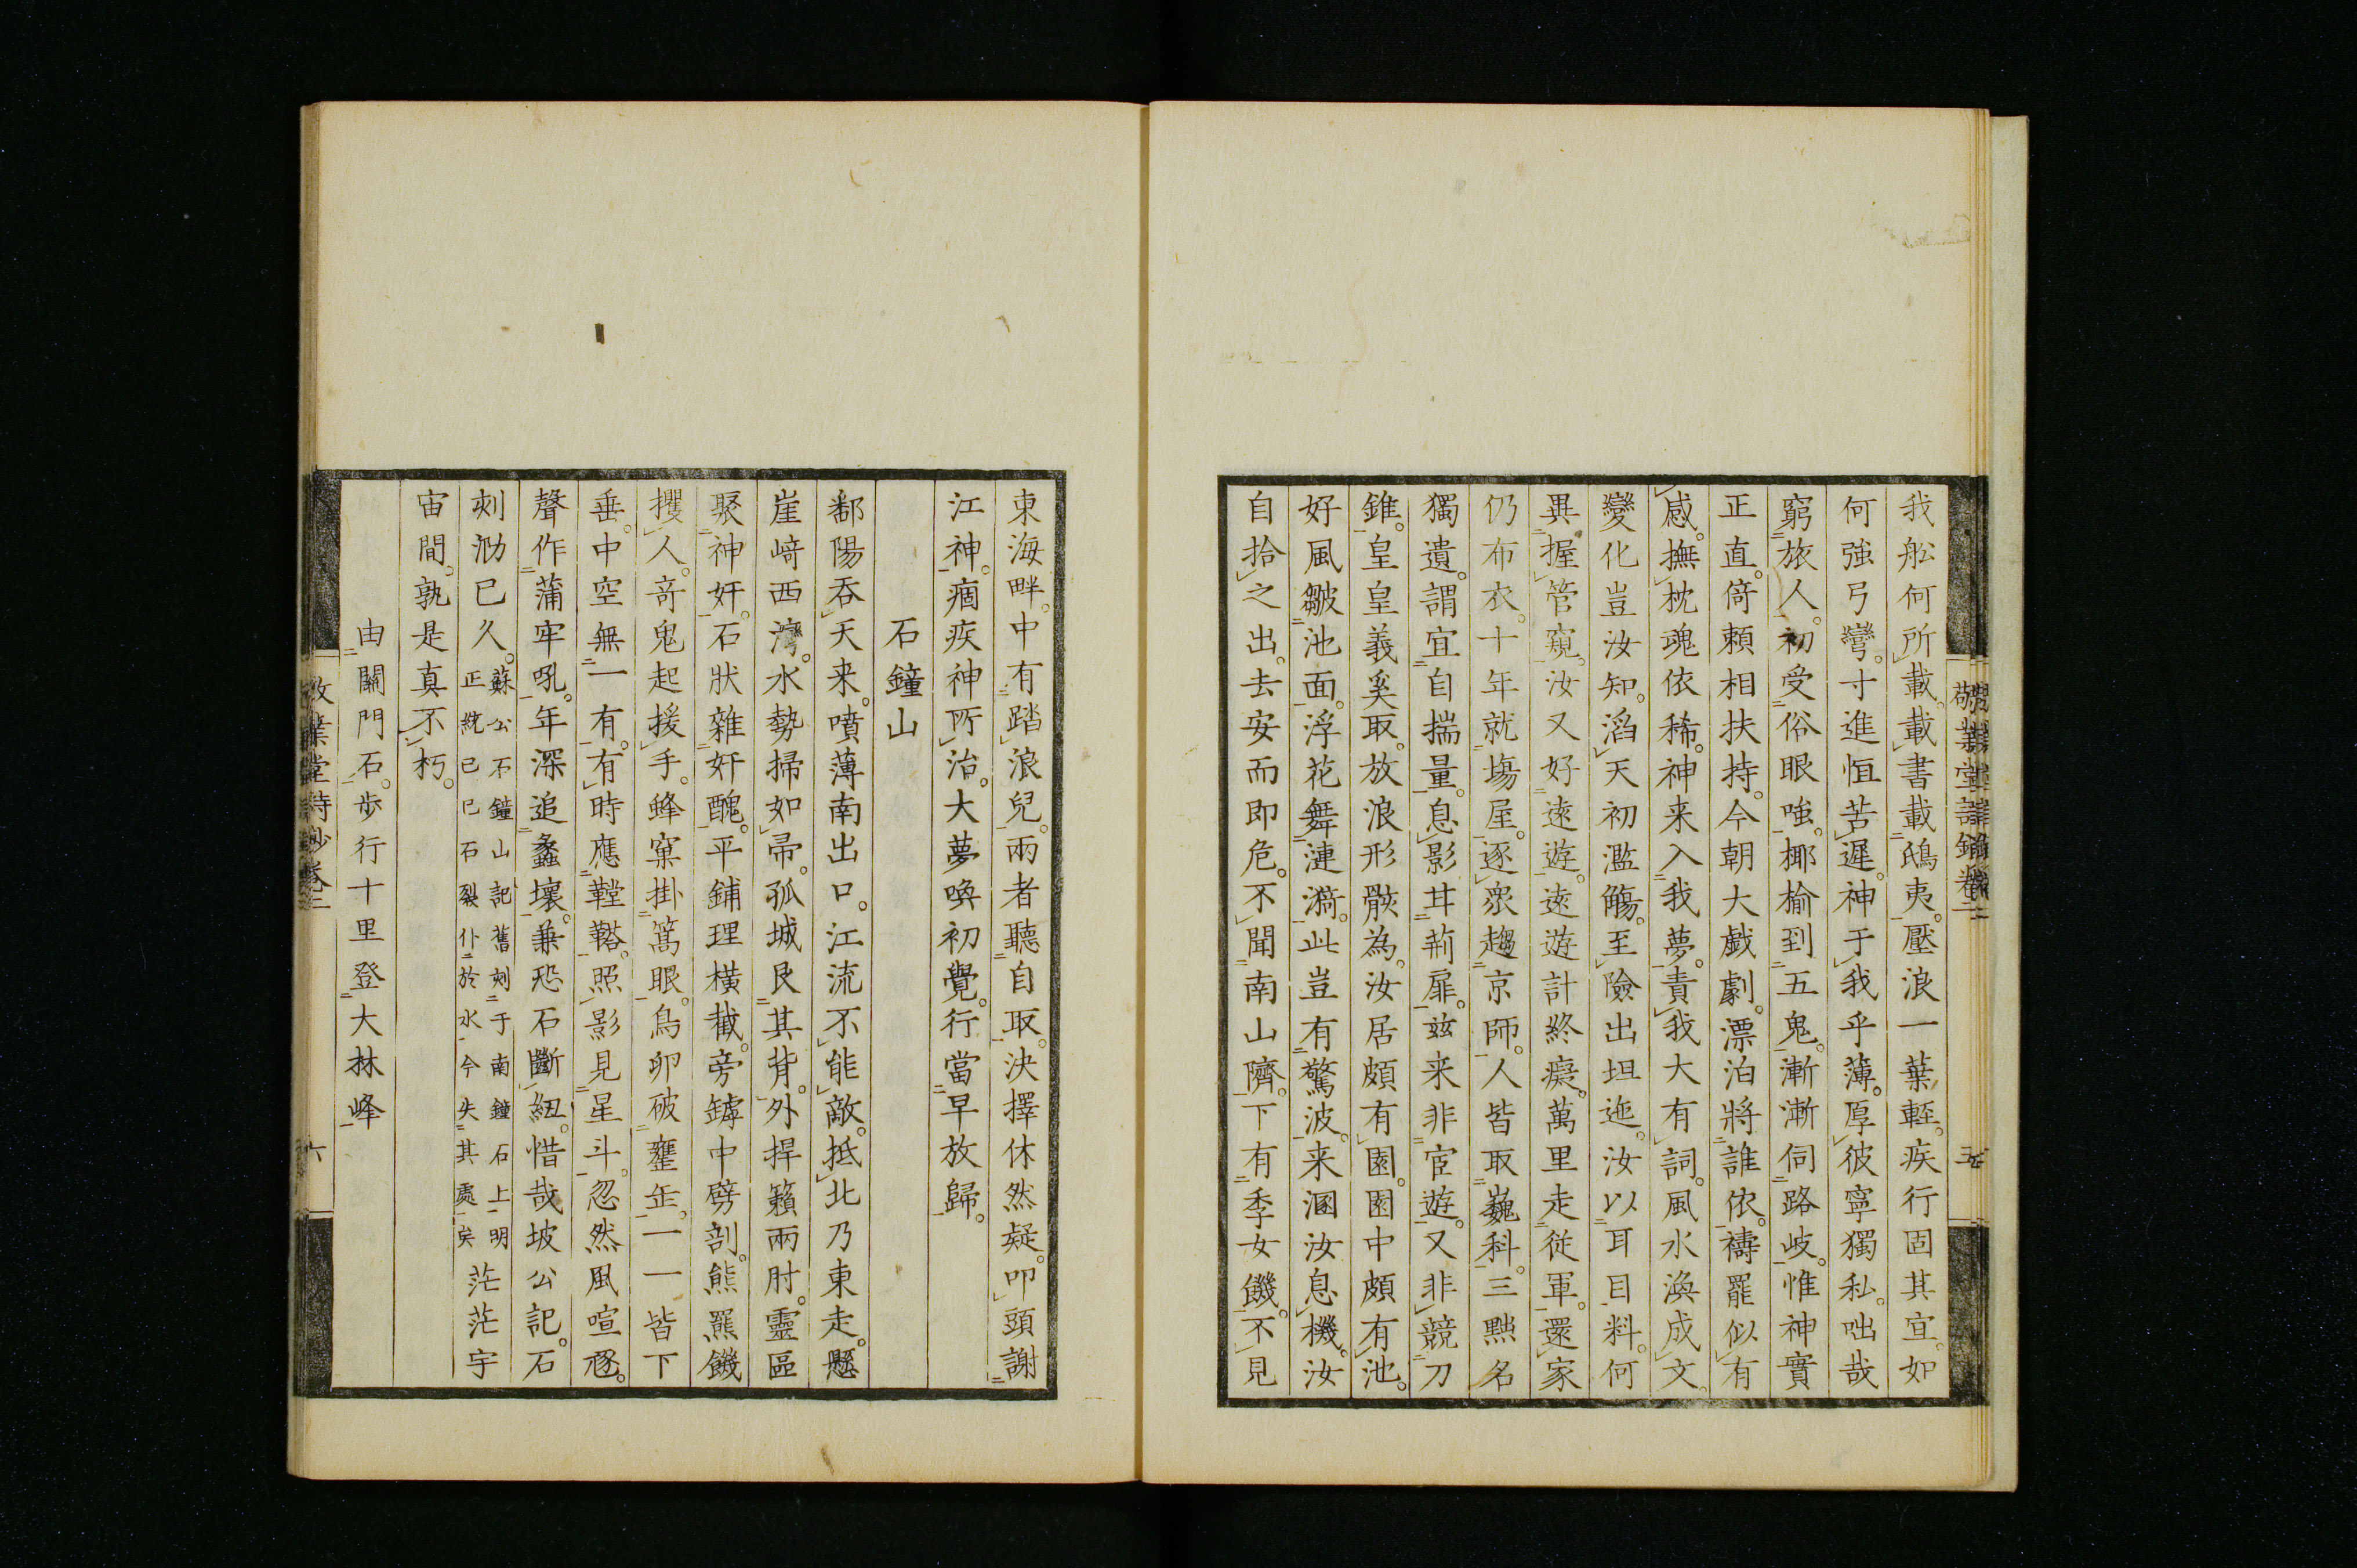 我船何所載載書載鴟夷壓浪一葉輕疾行固其宜如
何強弓彎寸進恒苦遲神于我乎薄厚彼寧獨私咄哉
窮旅人初受俗眼嗤揶揄到五鬼漸漸伺路岐惟神實
正直倚賴相扶持今朝大戲劇漂泊將誰依禱罷似有
感撫枕魂依稀神来入我夢責我大有詞風水渙成文
變化豈汝知滔天初濫觴至險出坦迤汝以耳目料何
異握管窺汝又好遠遊遠遊計終癡萬里走従軍還家
仍布衣十年就塲屋逐衆趨京師人皆取巍科三黜名
獨遺謂宜自揣量息影甘荊扉兹来非宦遊又非競刀
錐皇皇義奚取放浪形骸為汝居頗有園園中頗有池
好風皺池面浮花舞漣漪此豈有驚波来溷汝息機汝
自拾之出去安而即危不聞南山隮下有季女饑不見
敬業堂詩鈔卷二 五
東海畔中有踏浪兒兩者聽自取決擇休然疑叩頭謝
江神痼疾神所治大夢喚初覺行當早放歸
石鐘山
鄱陽吞天来噴薄南出口江流不能敵抵北乃東走懸
崖﨑西灣水勢掃如帚孤城艮其背外捍籟兩肘靈區
聚神奸石狀雜奸醜平鋪理橫截旁罅中劈剖熊羆饑
攫人竒鬼起援手蜂窠掛篙眼鳥卵破甕缶一一皆下
垂中空無一有有時應鞺鞳照影見星斗忽然風喧豗
聲作蒲牢吼年深追蠡壞兼恐石斷紐惜哉坡公記石
刻泐已久蘇公石鐘山記舊刻于南鐘石上明正統己巳石裂仆於水今失其處矣茫茫宇
宙間孰是真不朽
由關門石歩行十里登大林峰
敬業堂詩鈔卷二 六